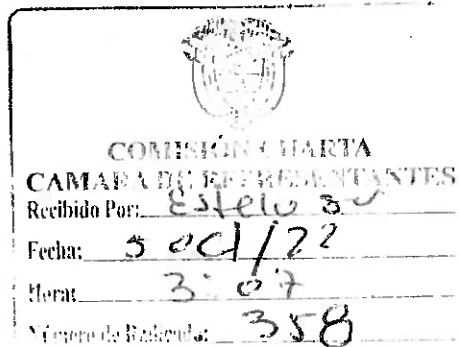 COMISIÓN CUARTA
CAMARA DE REPRESENTANTES
Recibido Por:
Fecha: 5 oct/22
Hora: 3:07
Número de Radicado: 358